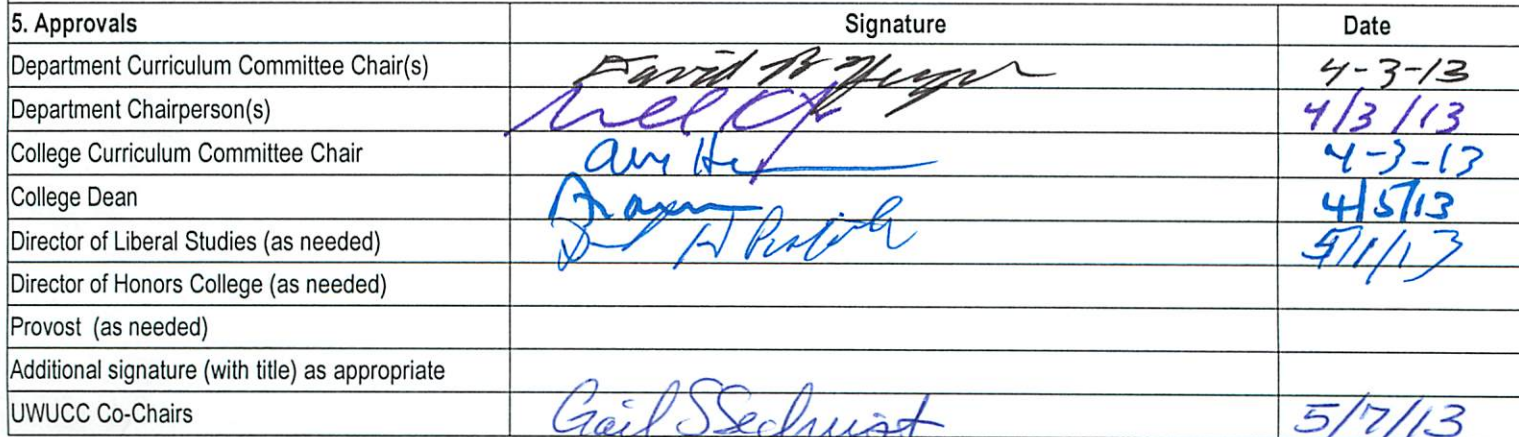 5. Approvals Signature Date
Department Curriculum Committee Chair(s) David B 4-3-13
Department Chairperson(s) 4/3/13
College Curriculum Committee Chair 4-3-13
College Dean 4/5/13
Director of Liberal Studies (as needed) D H /1/13
Director of Honors College (as needed)
Provost (as needed)
Additional signature (with title) as appropriate
UWUCC Co-Chairs Gail S Sechrist 5/7/13